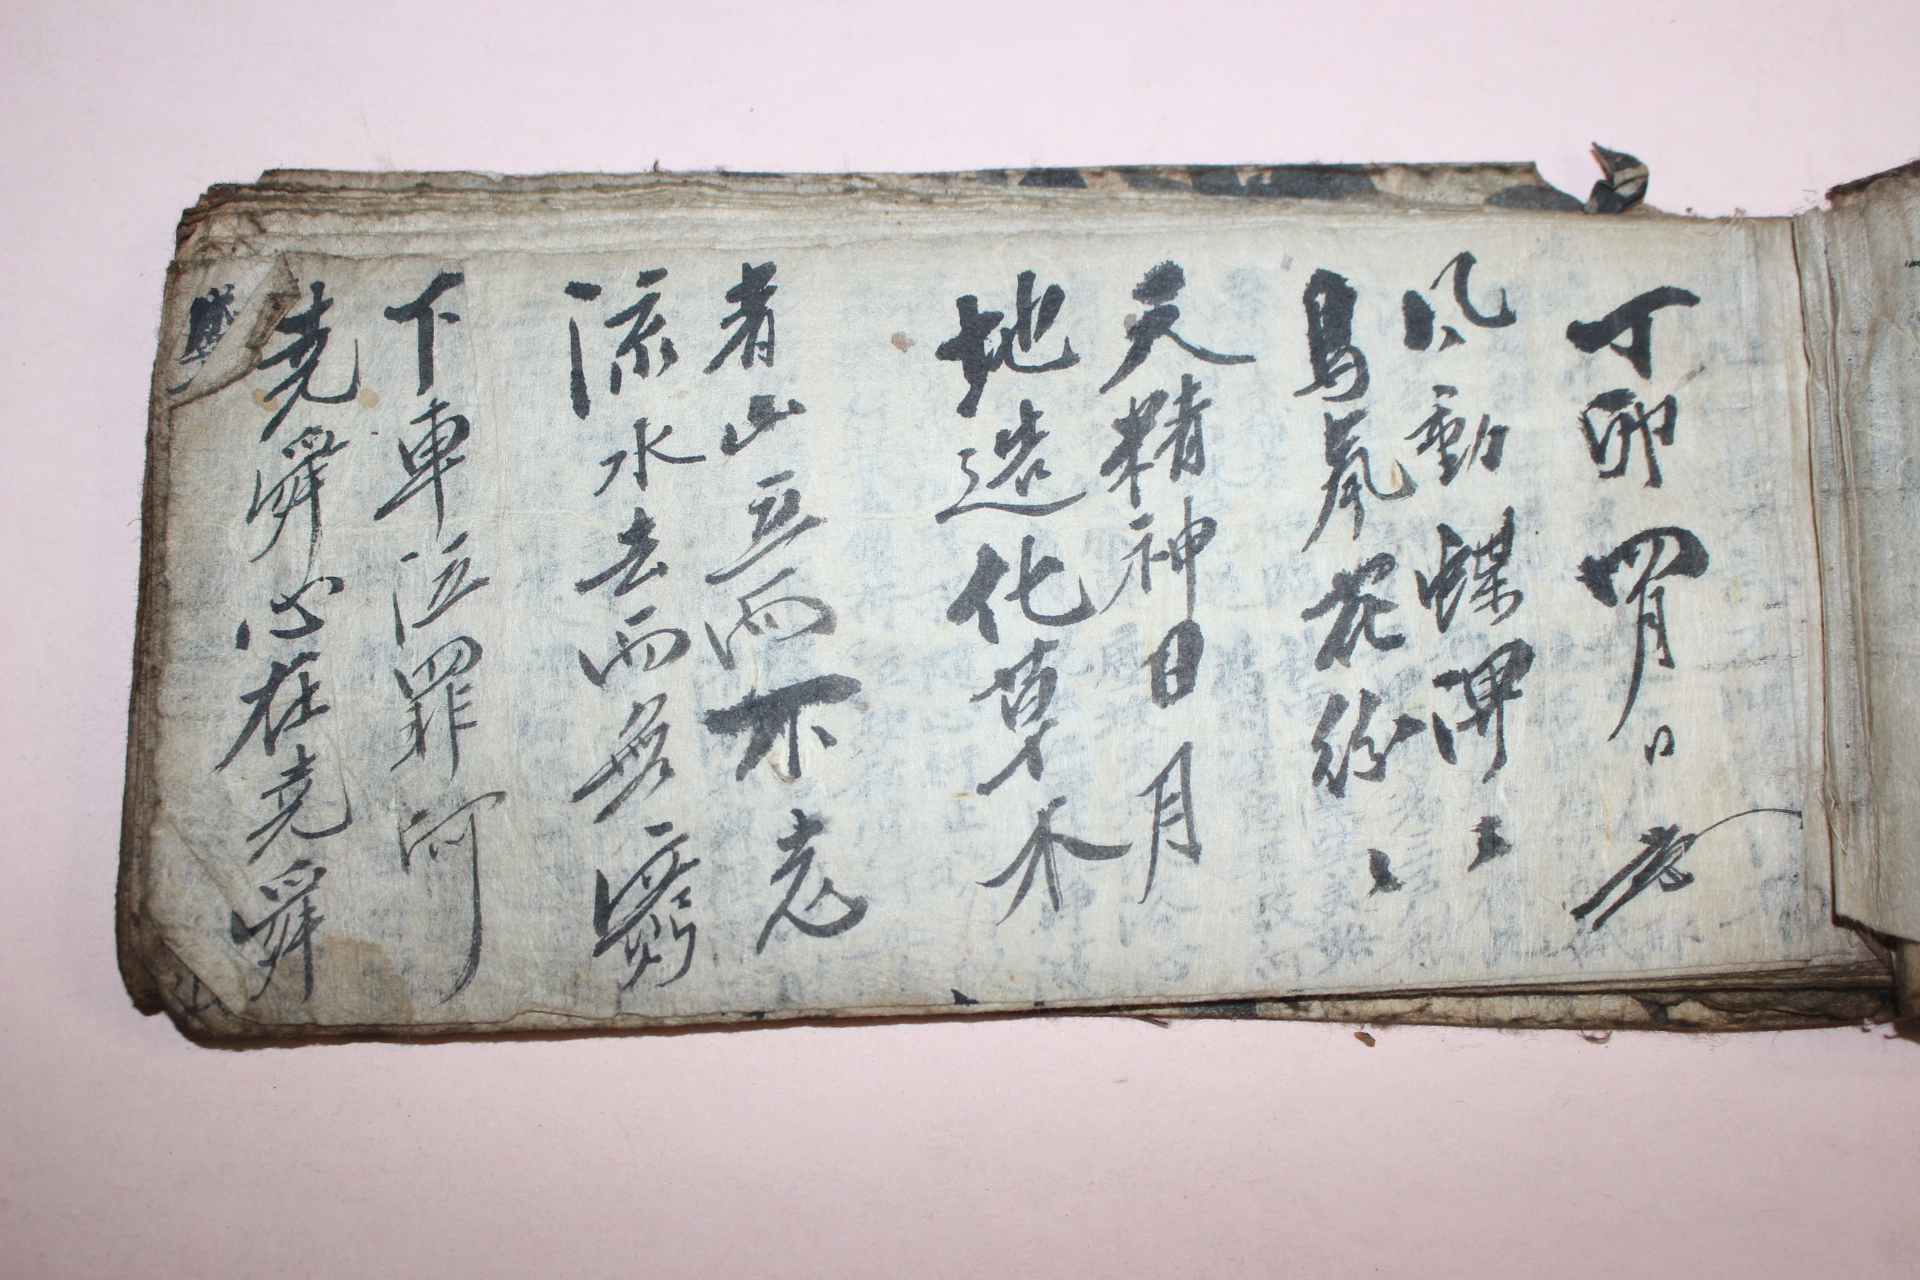 丁卯四月日
風動蝶
鳥　花紛
天精神日月
地造化草木
青山立而不老
流水去而無窮
下車泣罪何
堯舜心在堯舜